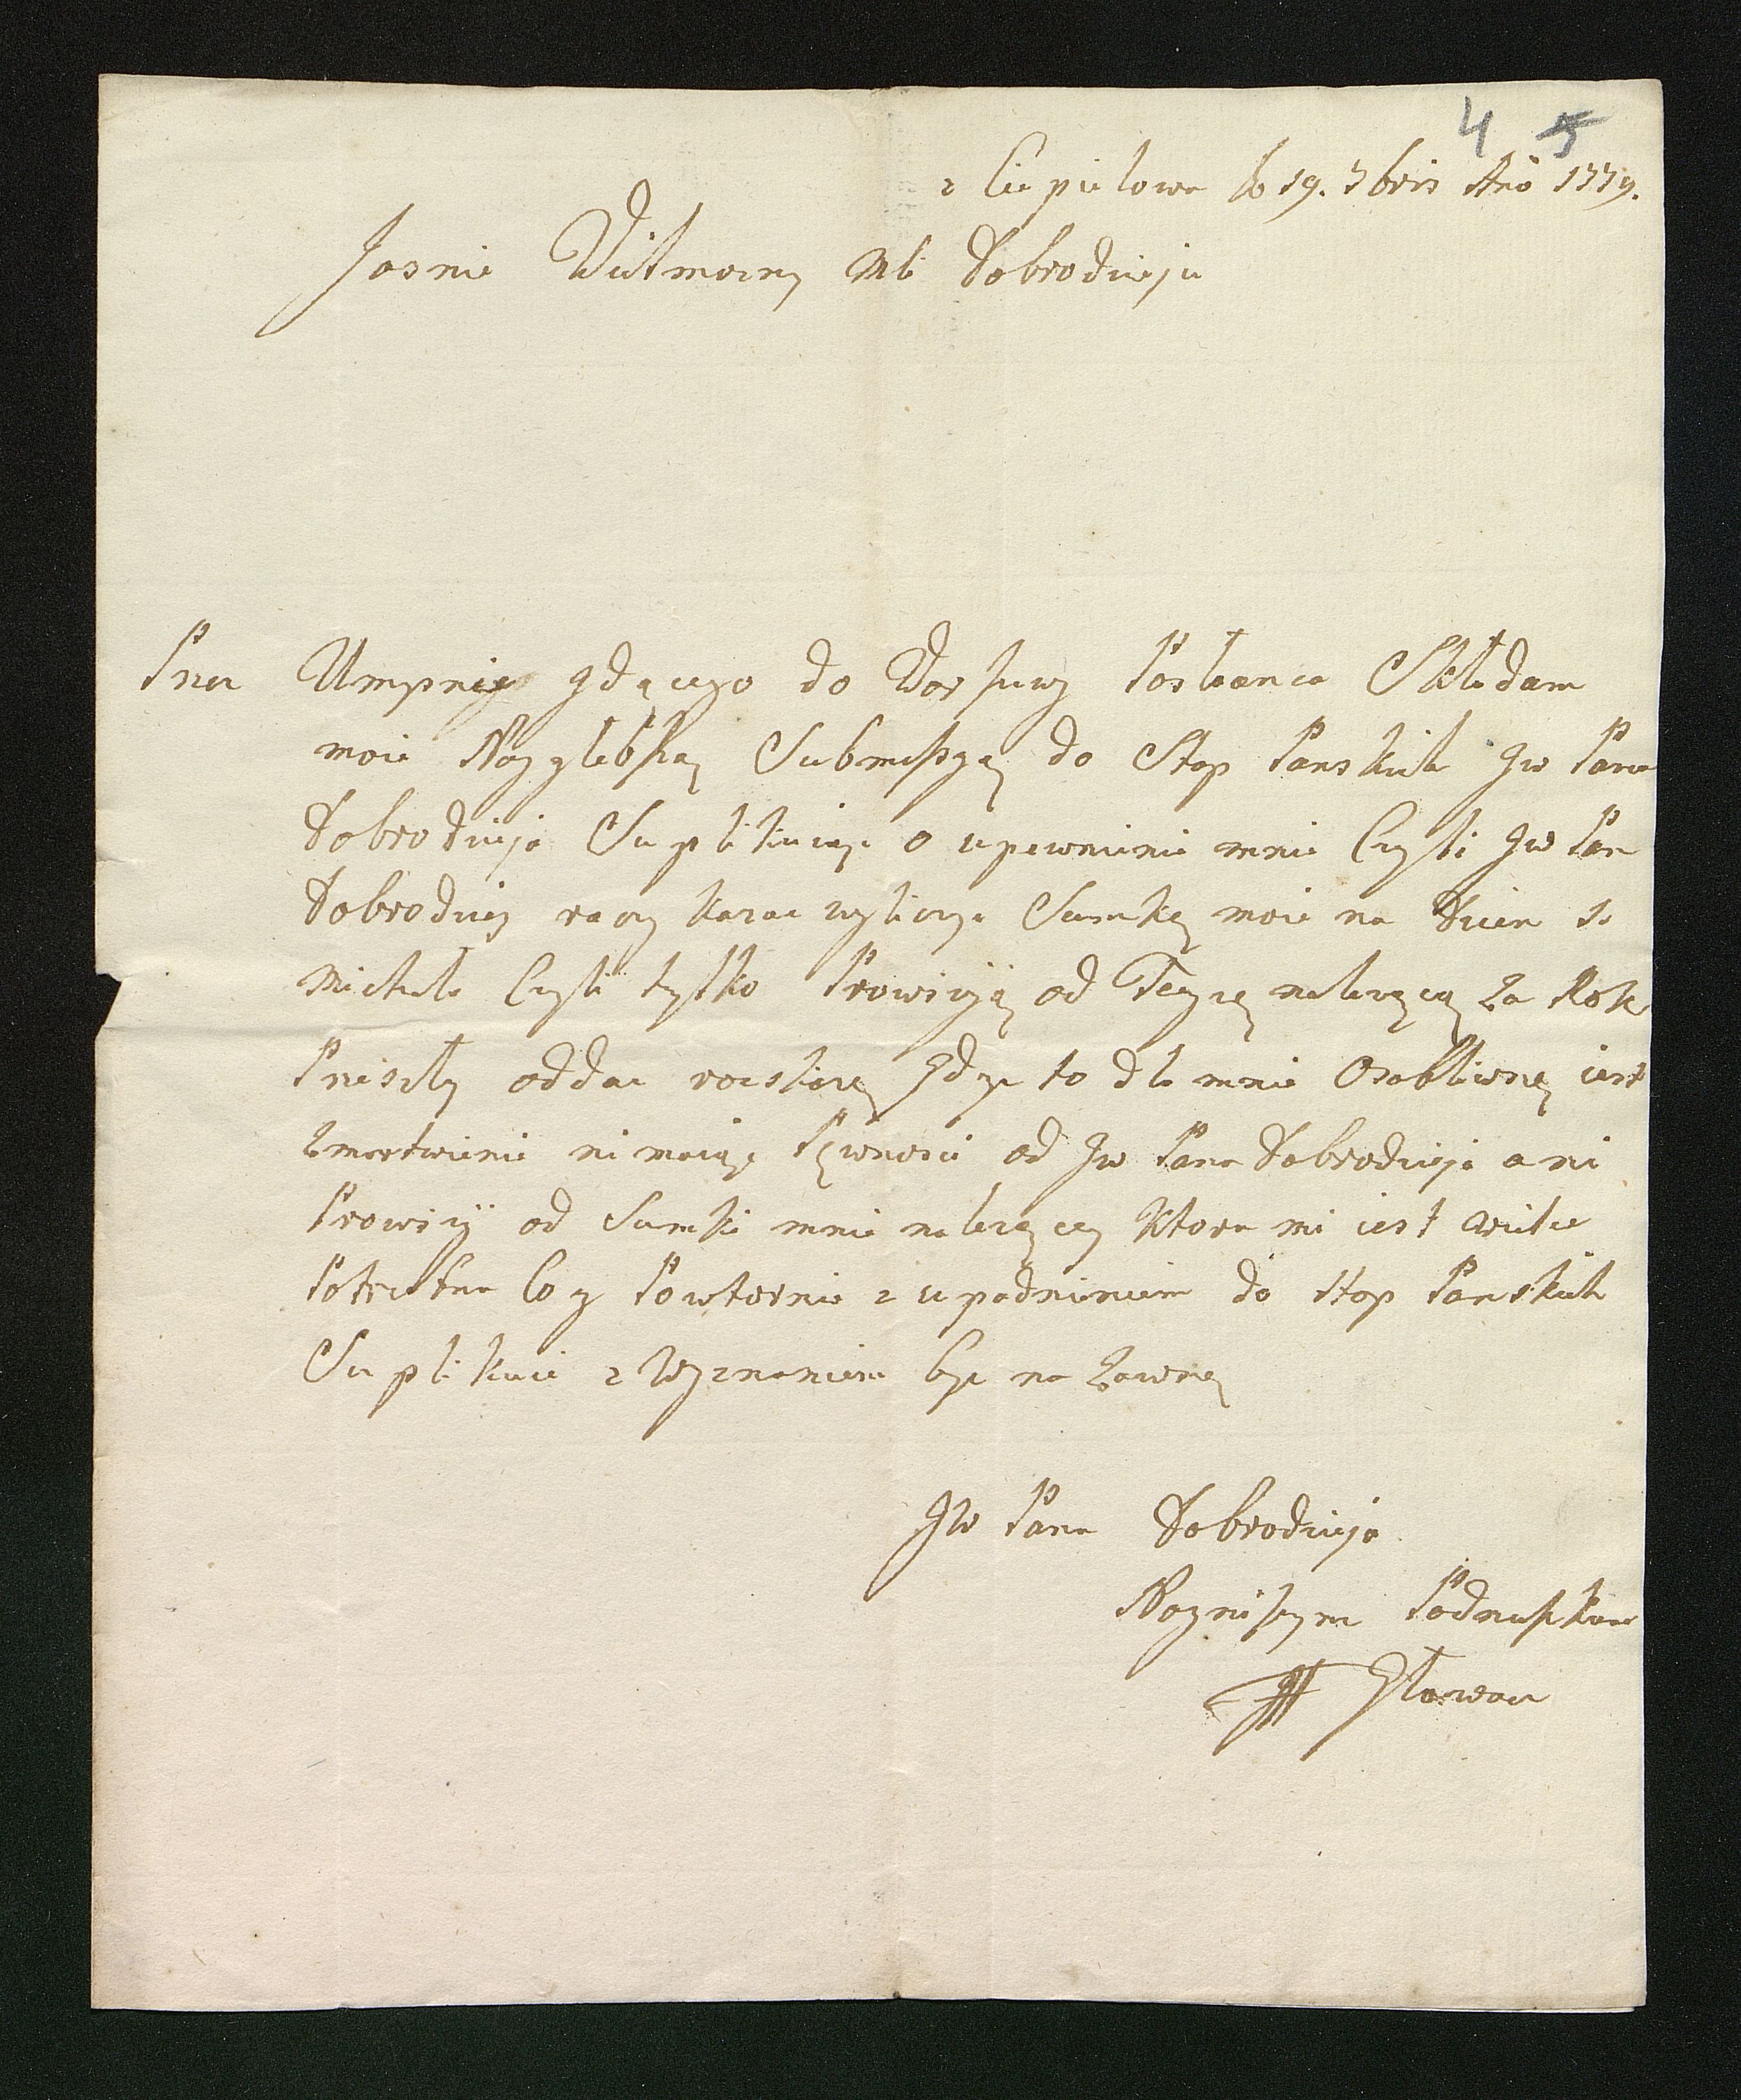 4 5
z Ciepielowa d. 19. 7bris Ano 1779.
Jasnie Wielmozny Mci Dobrodzieju
Przez Umyśnię Jdącego do Warszawy Posłanca Składam
moie Nayglebszą Submissyą do Stop Panskich Jw Pana
Dobrodzieja Suplikuiąc o upewnienie mnie Czyli Jw Pan
Dobrodziey raczy kazac wyliczyc Sumkę moie na Dzien S.
Michała Czyli tylko Prowizyią od Teyze nalezącą za Rok
Przeszły oddac roskarze Gdyz to dla mnie Osobliwsze iest
Zmartwienie ni maiąc Pęwnosci od Jw Pana Dobrodzieja ani
Prowizij od Sumki mnie nalezący Ktora mi iest wielce
Potrzebna Co y Powtornie z upadnieniem do Stop Panskich
Suplikuie z Wyznaniem bydz na Zawsze
JW Pana Dobrodzieja
Nayniszym Podnuszkiem